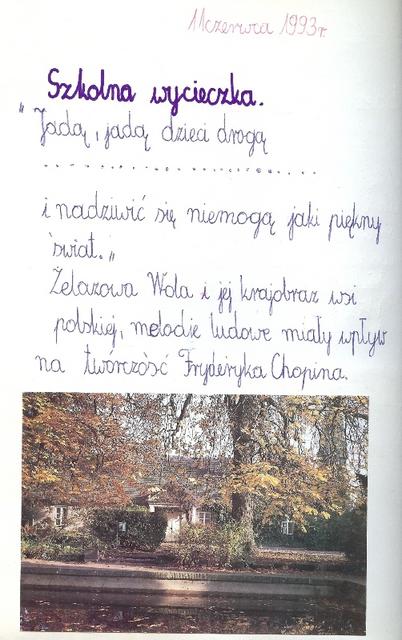 11 czerwca 1993r.
Szkolna wycieczka.
"Jadą, jadą dzieci drogą
..............................
i nadziwić się niemogą jaki piękny
świat."
Żelazowa Wola i jej krajobraz wsi
polskiej, melodie ludowe miały wpływ
na twórczość Fryderyka Chopina.